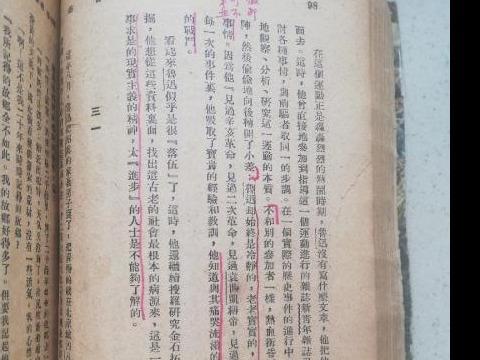 98
在這個運動正是轟轟烈烈的戰鬭時期,魯迅沒有寫什麼文章,他把
面去。這時,他曾直接地參加到指導這一個運動進行的雜誌新靑年雜誌
討各種事情,與前驅者取同一的步調。在一個實際的歷史事件的進行中
地觀察、分析、硏究這一運動的本質。不和別的參加者一樣,熱血衝昏
陣,然後偷偷地向後轉開了小差。魯迅却始終是冷靜的,老老實實的,
事情。因爲他『見過辛亥革命,見過二次革命,見過袁世凱稱帝,見張
每一次的事件裏,他吸取了寶貴的經驗和敎訓,他知道與其痛哭流涕的
的戰鬥。
看起來魯迅似乎是很『落伍』了,這時,他還繼續搜羅硏究金石拓
掘,他想從這些資料裏面,找出這古老的社會最根本的病源來,這是一
事求是的現實主義的精神,太『進步』的人士是不能夠了解的。
三一
『啊!這不是我二十年來時時記得的故鄉?
『我所記得的故鄉全不如此。我的故鄉好得多了。但要我記起